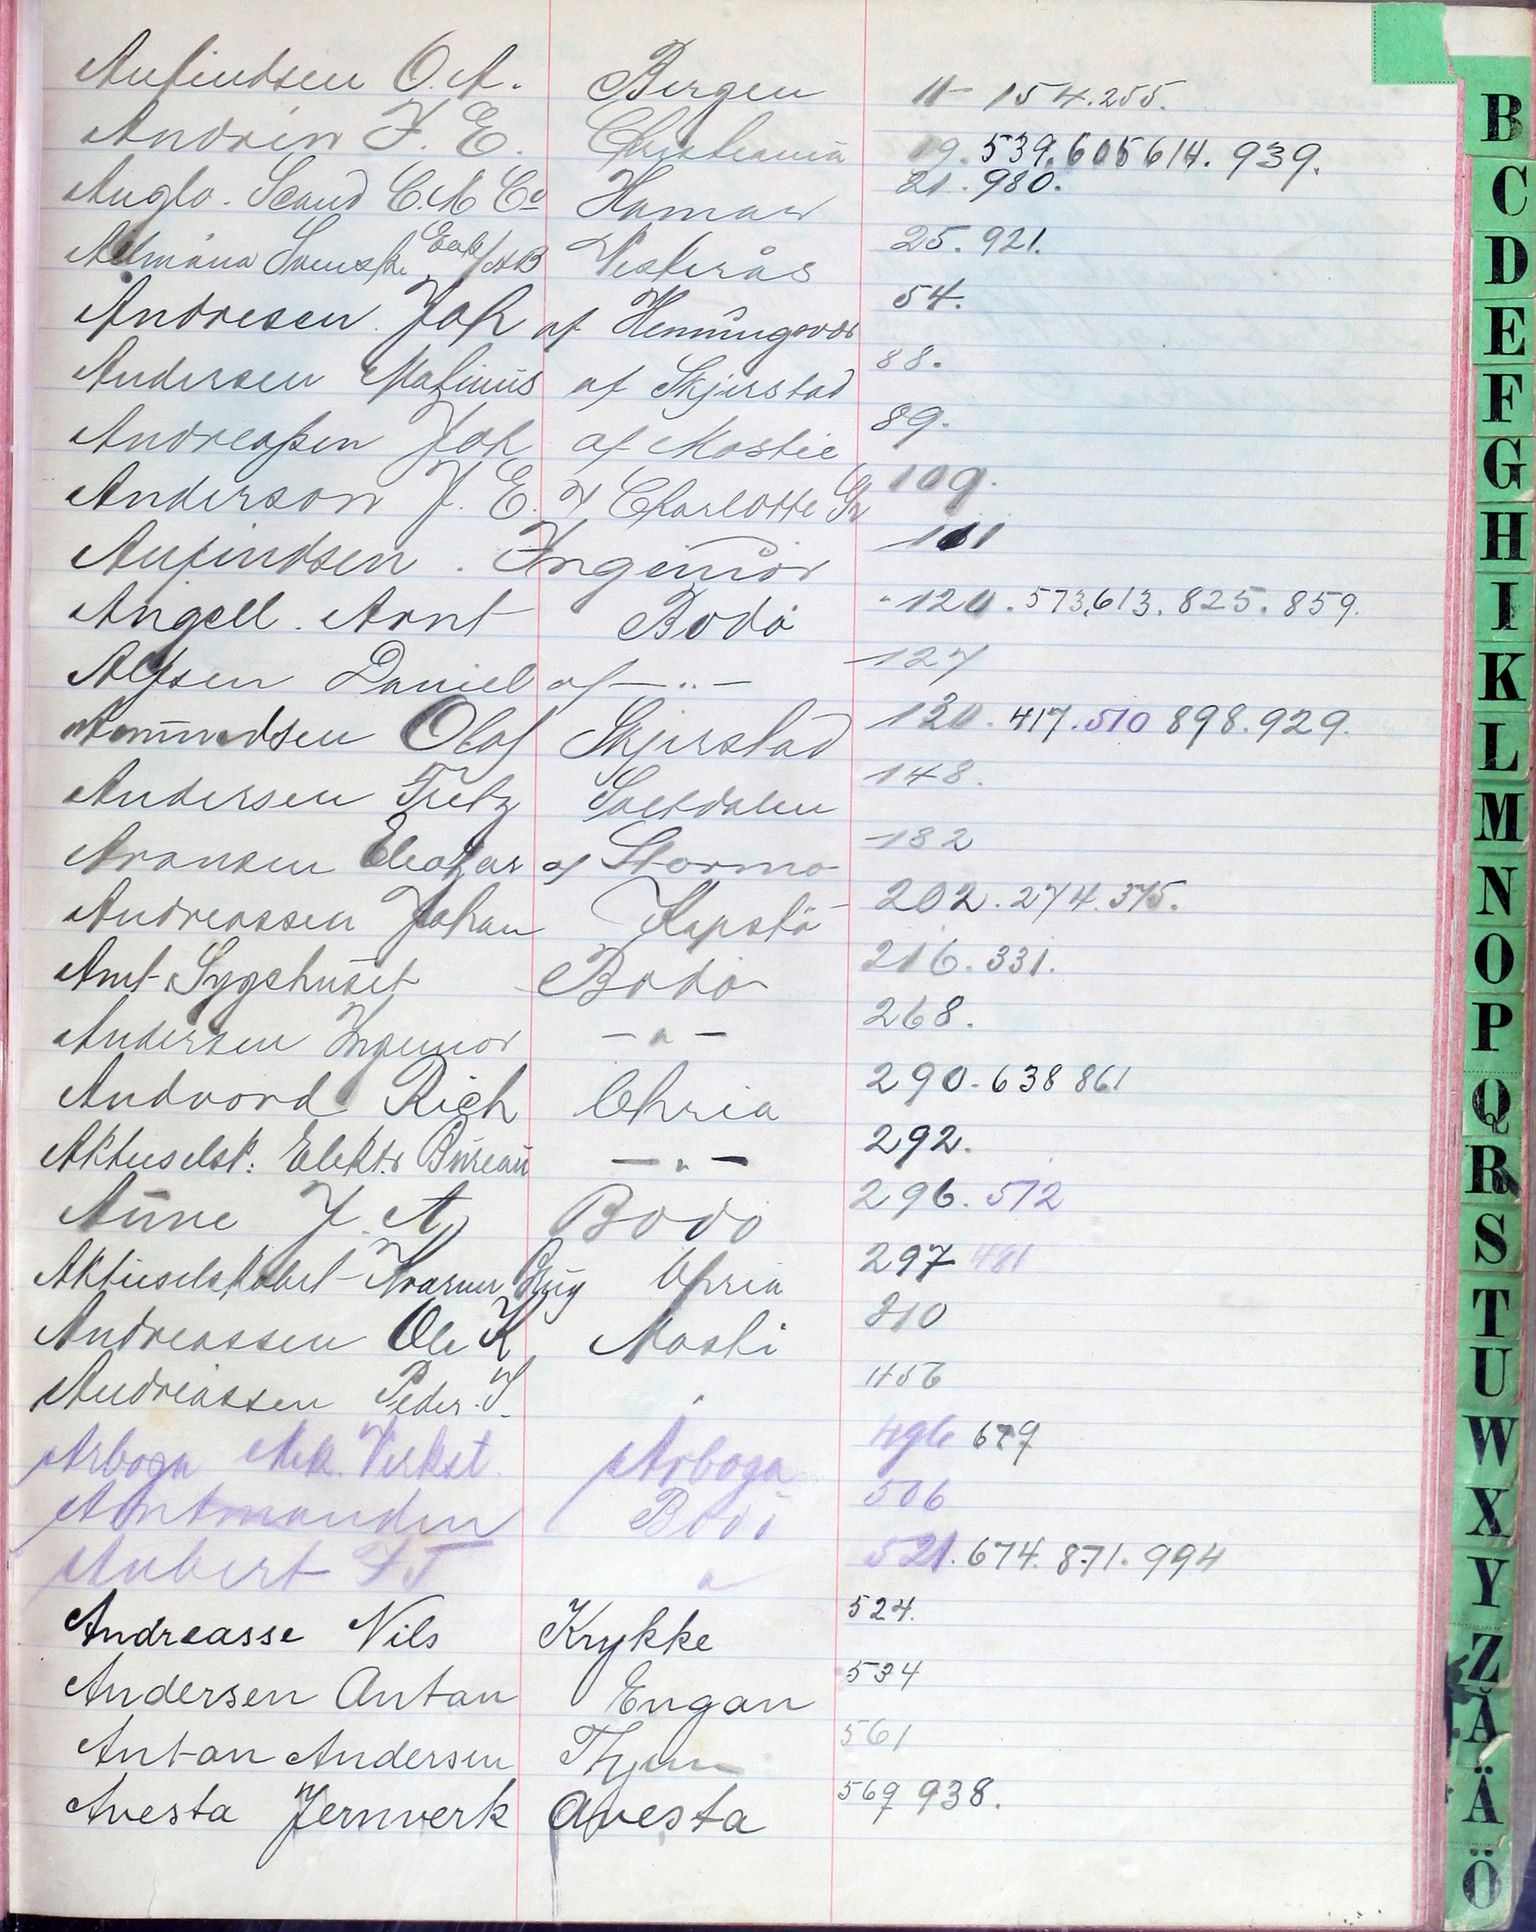 Anfindsen O. A. Bergen 11 154.255.
Andrén F. E. Christiania 19. 539. 605 614. 939.
Anglo-Scand C. M. Co Hamar 21. 980.
Allmäna Svenska Elek. A/B Vesterås 25. 921.
Andresen Joh af Henningsvær 54.
Andersen Mafinus af Skjerstad 88.
Andreaßen Joh af Moshie 89.
Anderson J. E. & Charlotte Gr 109.
Anfindsen. Ingeniör 111
Angell. Arnt Bodö 120. 573,613. 825. 859.
Alfsen Daniel af —"— 127
Amundsen Olaf Skjerstad 130. 417. 510 898. 929.
Andersen Fritz Saltdalen 148.
Aronsen Eleazar af Stormo 182
Andreassen Johan Kapstö 202. 274. 375.
Amt Sygehuset Bodö 216. 331.
Andersen Ingeniör —"— 268.
Andvord Rich Chria 290. 638 861
Aktieselsk: Elektr Büreau —"— 292.
Aüne J. A. Bodö 296. 572
Aktieselskabet Kværner Brüg Chria 297 481
Andreassen Ole K Moshi 310
Andreassen Peder. J. " 456
Arboga Mek. Verkst. Arboga 496 679
Amtmanden Bodö 506
Aubert F J " 521. 674. 871. 994
Andreasse Nils Krykke 524.
Andersen Antan Engan 534
Antan Andersen 561
Avesta Jernverk Avesta 569 938.
B
C
D
E
F
G
H
I
K
L
M
N
O
P
Q
R
S
T
U
W
X
Y
Z
Å
Ä
Ö